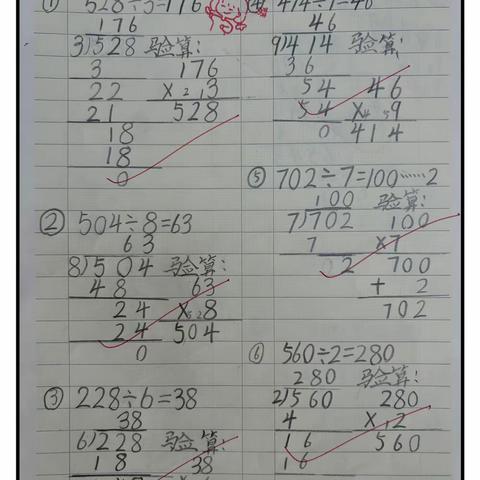 ① 528÷3=176
176
3)528 验算:
3 176
22 ×₂₁3
21 528
18
18
0
② 504÷8=63
63
8)504 验算:
48 63
24 ×₅₂8
24 504
0
③ 228÷6=38
38
6)228 验算:
18 38
46
9)414 验算:
36
54 46
54 ×₄₅9
0 414
⑤ 702÷7=100……2
100 验算:
7)702 100
7 ×7
2 700
+ 2
702
⑥ 560÷2=280
280 验算:
2)560 280
4 ×₁2
16 560
16